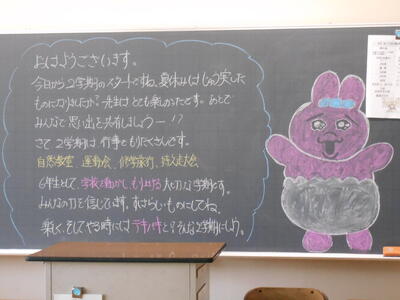 おはようございます。
今日から2学期のスタートですね。夏休みはじゅう実した
ものになりましたか?先生はとても楽しかったです。あとで
みんなで思い出を共有しましょうー!?
さて2学期は行事もりだくさんです。
自然教室、運動会、修学旅行、持久走大会
6年生として、学校を動かし、もり上げる大切な学期です。
みんなの力を信じています。すばらしいものにしてね。
楽しく、そしてやる時にはテキパキと!そんな2学期にしよう。